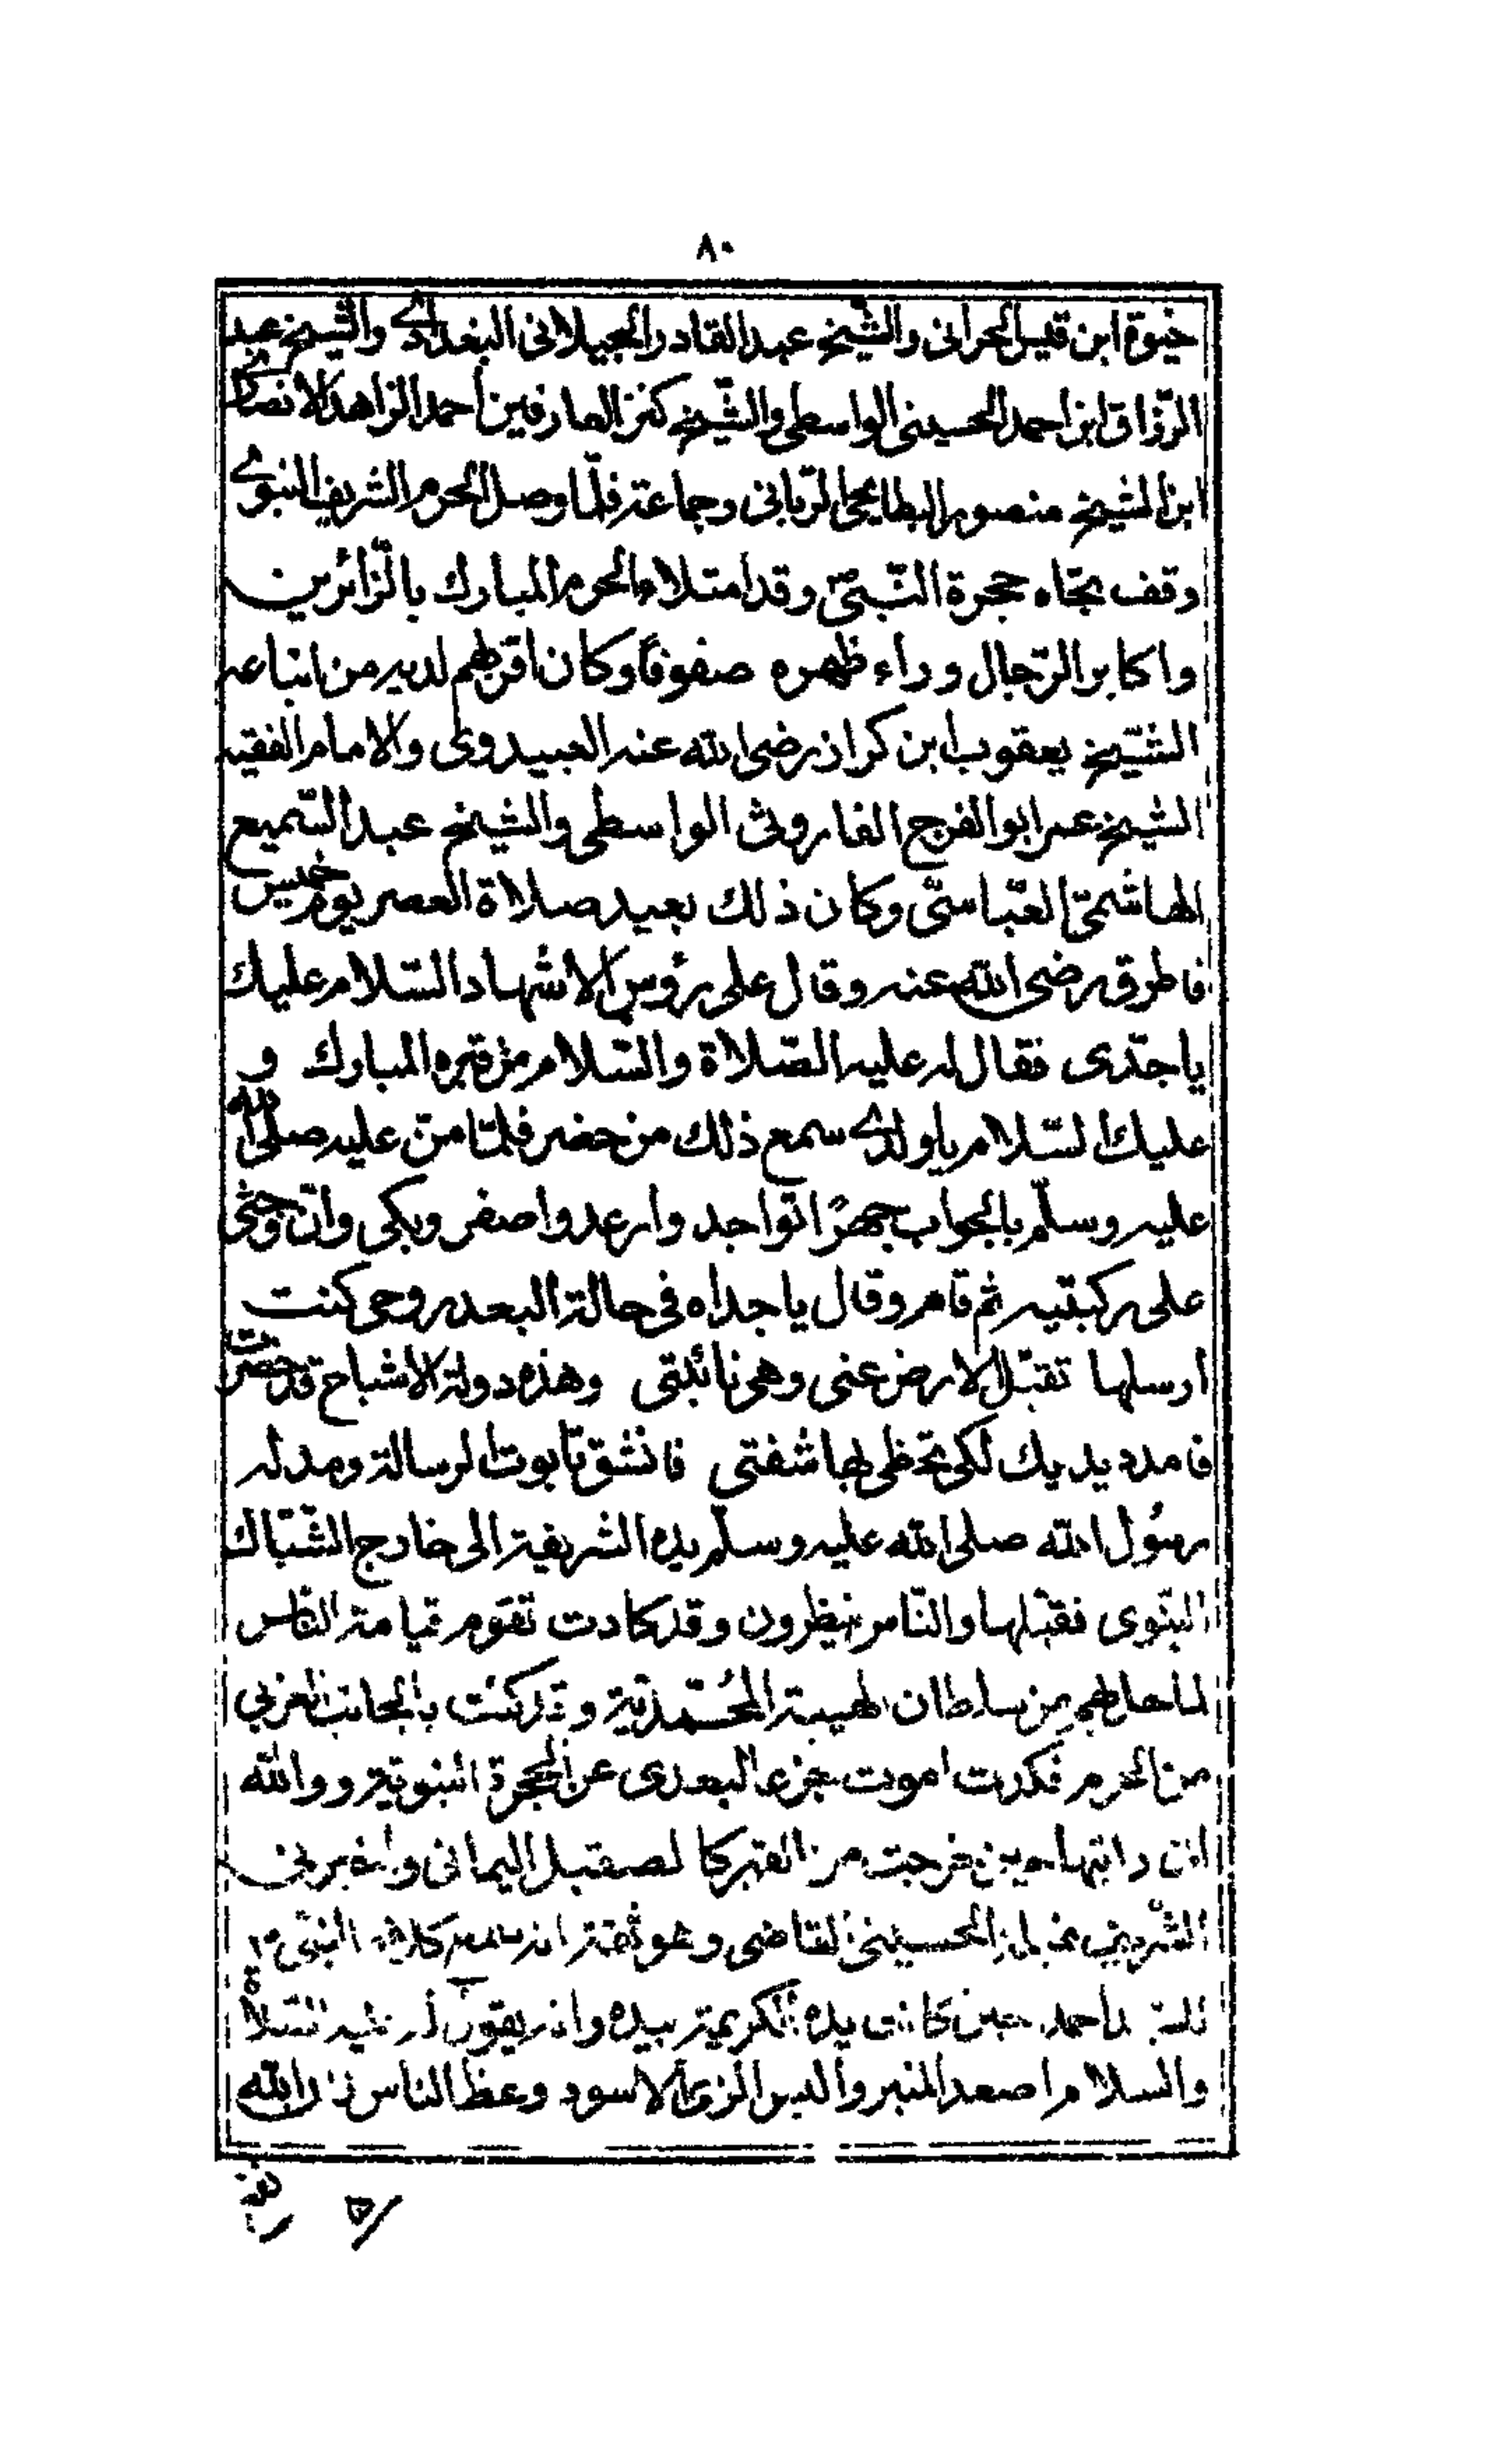 ٨٠
خيوة ابن قيس الحراني والشيخ عبد القادر الجيلاني البغدادي والشيخ عبد
الرّزاق ابن احمد الحسيني الواسطي والشّيخ كنز العارفين أحمد الزاهد الانصاري
ابن الشيخ منصور البطايحي الرّباني وجماعة فلمّا وصل الحرم الشريف النبوي
وقف تجاه حجرة النّبيّ وقد امتلاء الحرم المبارك بالزّائرين
واكابر الرّجال وراء ظهره صفوفًا وكان اقربهم لديه من اتباعه
الشّيخ يعقوب ابن كراز رضى الله عنه العبيدوي والامام الفقيه
الشيخ عمر ابو الفرج الفاروثى الواسطى والشيخ عبد السّميع
الهاشميّ العبّاسيّ وكان ذلك بعيد صلاة العصر يوم خميس
فاطرق رضى الله عنه وقال على رؤس الاشهاد السّلام عليك
يا جدّى فقال له عليه الصّلاة والسّلام من قبره المبارك و
عليك السّلام يا ولدي سمع ذلك من حضر فلمّا منّ عليه صلى الله
عليه وسلّم بالجواب جهرًا تواجد وارعد واصفر وبكى وانّ وجثى
على ركبتيه ثم قام وقال يا جداه فى حالة البعد روحى كنت
أرسلها تقبّل الارض عنى وهى نائبتى وهذه دولة الاشباح قد حضرت
فامدد يديك لكى تحظى بها شفتى فانشق تابوت الرسالة ومد له
رسُول الله صلى الله عليه وسلّم يده الشريفة الى خارج الشّبّاك
النبّوى فقبّلها والنّاس ينظرون وقد كادت تقوم قيامة النّاس
لما حل بهم من سلطان الهيبة المحُمّديّة وقد كنت بالجانب الغربي
من الحرم فكدت اموت جزعا لبعدى عن الحجرة النبوية ووالله
انى رايتها حين خرجت من القبر كالصقيل اليمانى واخبرنى
الشّريف الحسينى القاضى وهو ثقة انه سمع كلام النبّي
احمد حين كانت يده الكريمة بيده وانه يقول له عليه الصّلاة
والسلام اصعد المنبر والبس الزىّ الاسود وعظ الناس الله